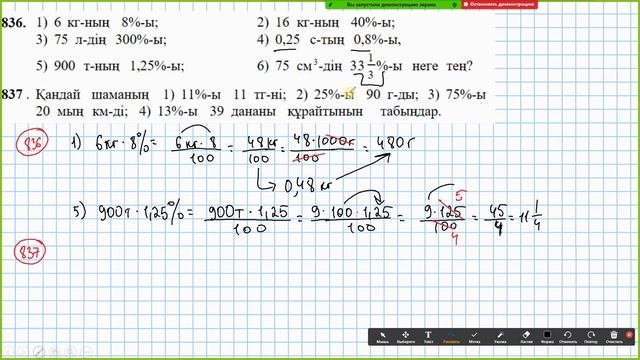 Вы запустили демонстрацию экрана Остановить демонстрацию
836. 1) 6 кг-ның 8%-ы; 2) 16 кг-ның 40%-ы;
3) 75 л-дің 300%-ы; 4) 0,25 с-тың 0,8%-ы,
5) 900 т-ның 1,25%-ы; 6) 75 см³-дің 33 1/3 %-ы неге тең?
837. Қандай шаманың 1) 11%-ы 11 тг-ні; 2) 25%-ы 90 г-ды; 3) 75%-ы
20 мың км-ді; 4) 13%-ы 39 дананы құрайтынын табыңдар.
836 1) 6кг · 8% = 6кг · 8/100 = 48кг/100 = 48 · 1000г/100 = 480г
0,48 кг
5) 900т · 1,25% = 900т · 1,25/100 = 9 · 100 · 1,25/100 = 9 · 125/100 = 45/4 = 11 1/4
5
4
837
Мышь Выберите Текст Рисовать Метка Узкие Ластик Формат Отменить Повторить Очистить Сохранить